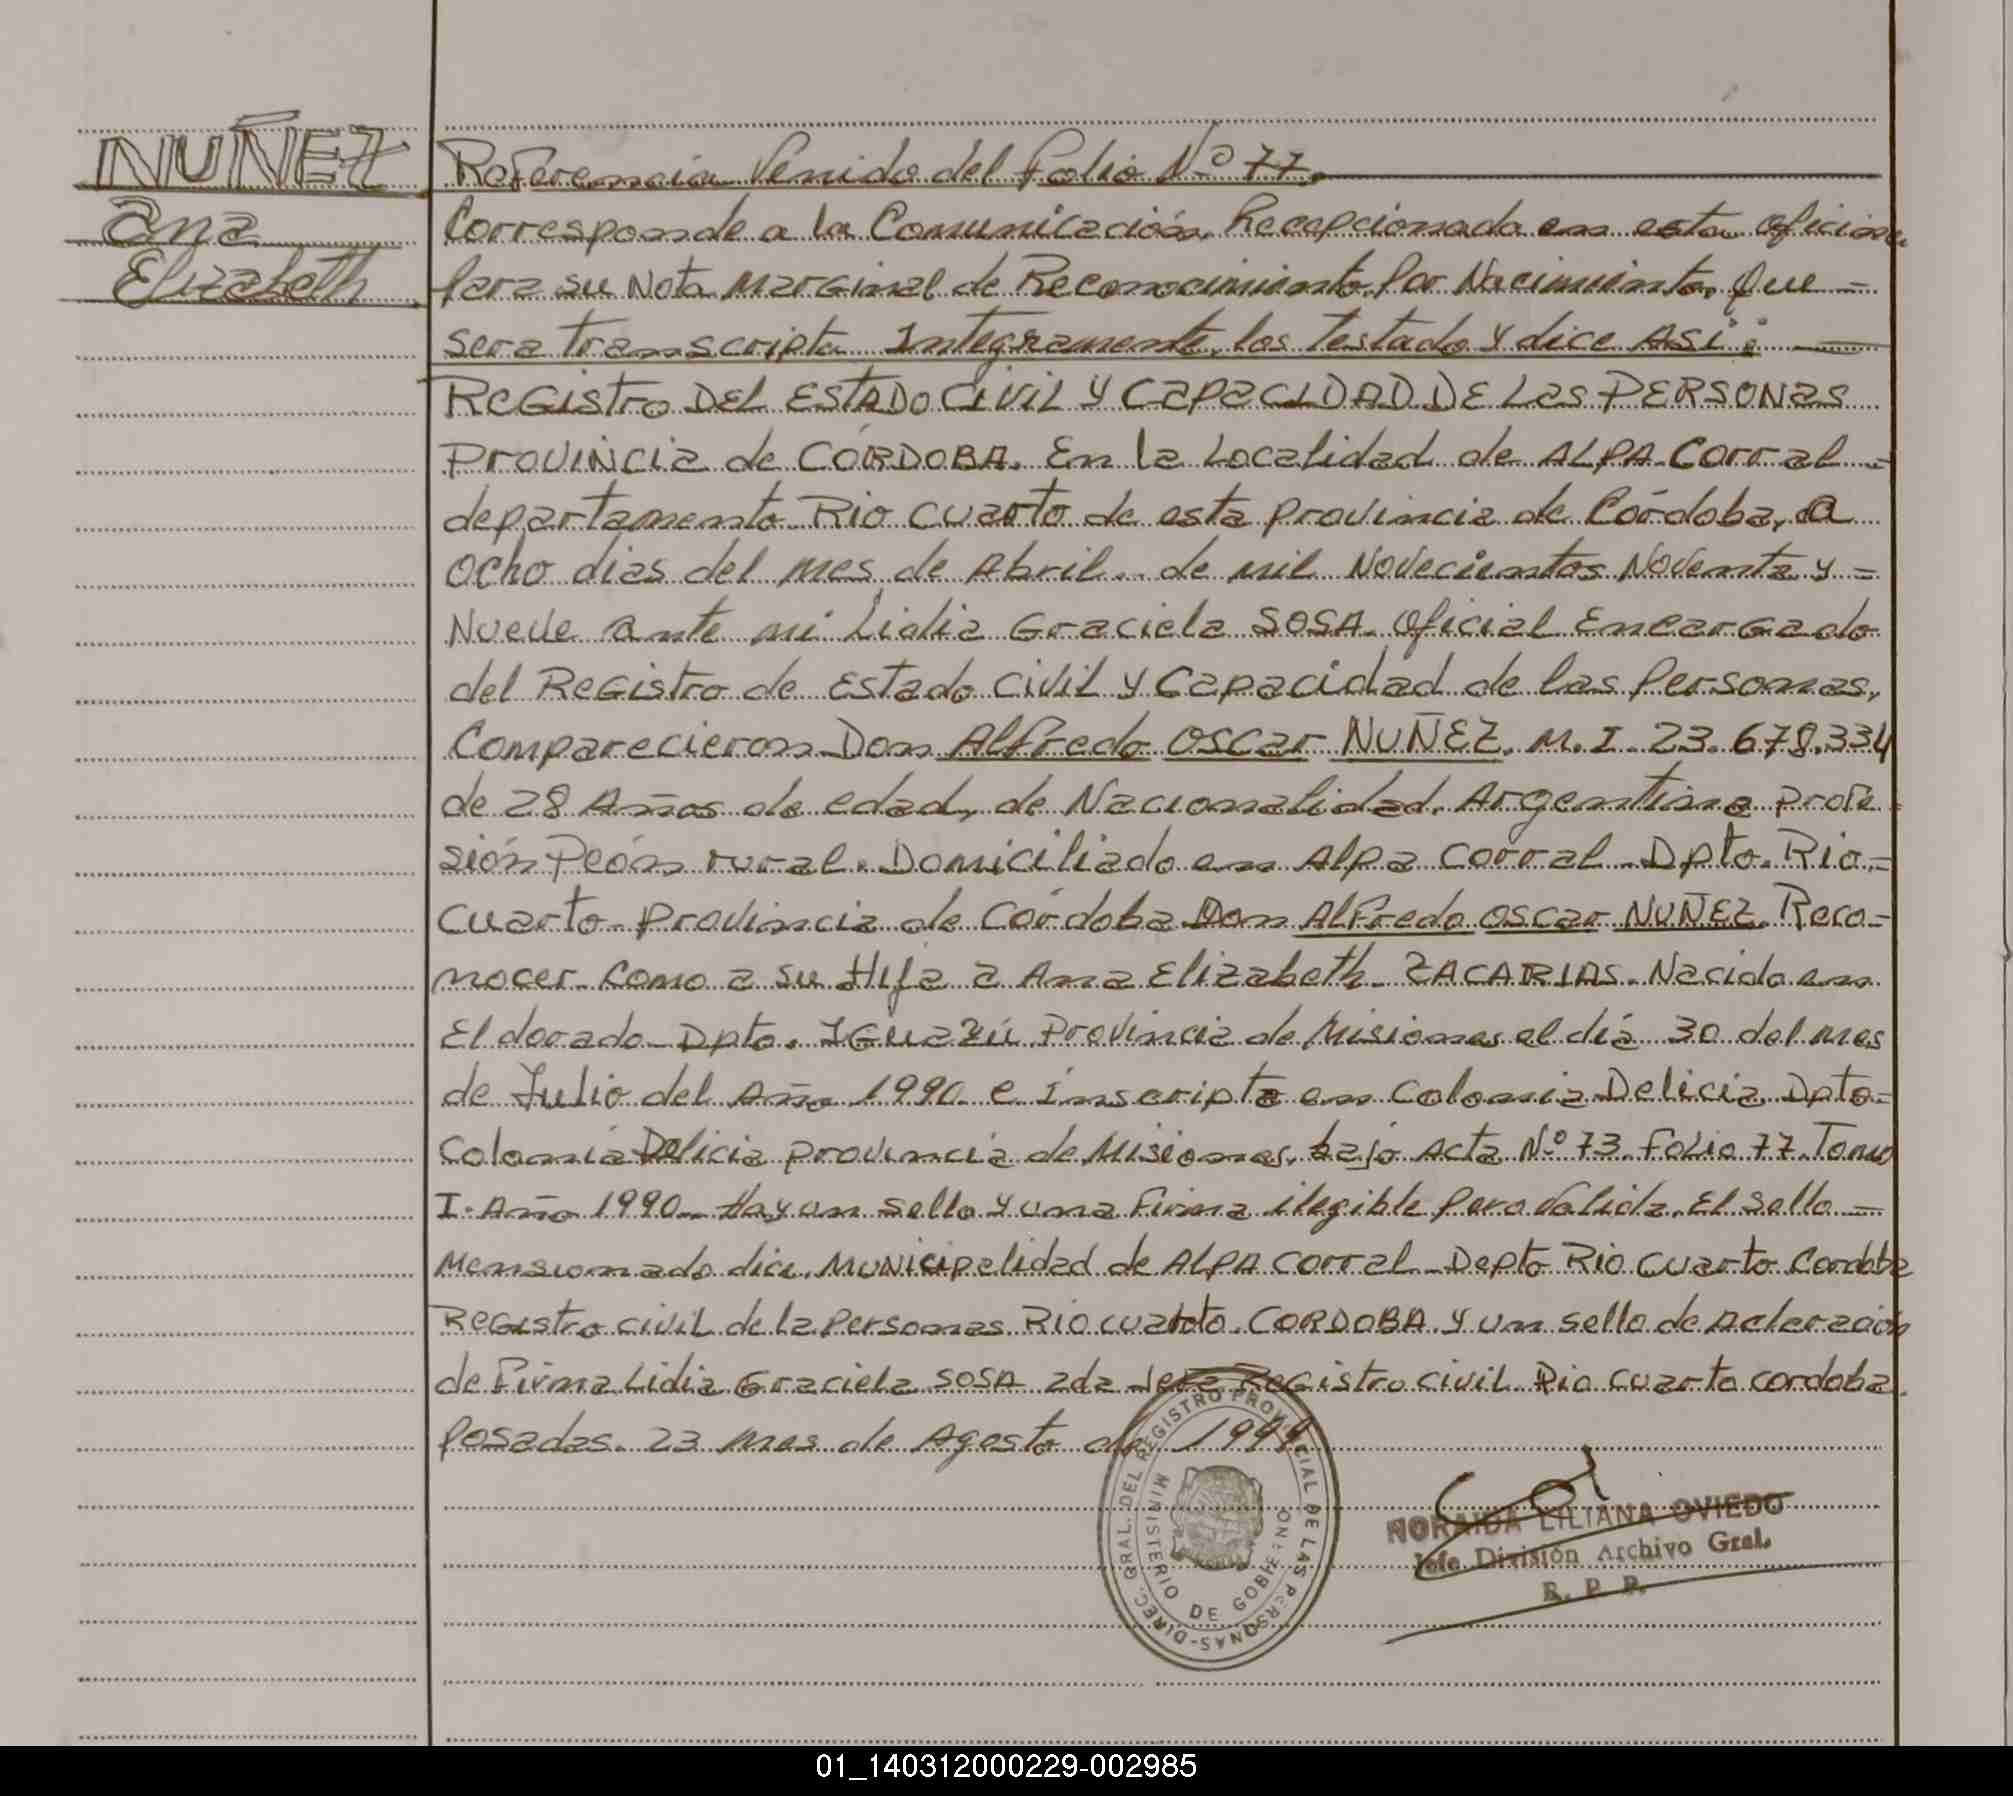 NUÑEZ
Ana
Elizabeth
Referencia Venido del Folio Nº 77.
Corresponde a la Comunicación, Recepcionada en esta oficina
Para su Nota Marginal de Reconocimiento Por Nacimiento, Que -
sera transcripta Integramente, los testado y dice Asi: —
REGistro DEL ESTADO CIVIL Y CAPACIDAD DE Las PERSONAS
PROVINCIA de CÓRDOBA. En la Localidad de ALPA Corral -
departamento Rio Cuarto de esta provincia de Córdoba, a
ocho dias del mes de Abril.. de mil Novecientos Noventa y =
Nueve ante mi Lidia Graciela SOSA. Oficial Encargado
del Registro de Estado Civil y Capacidad de las Personas,
Comparecieron Don Alfredo Oscar NUÑEZ. M. I. 23. 678.334
de 28 Años de edad, de Nacionalidad, Argentina profe-
sión Peón rural. Domiciliado en Alpa Corral - Dpto. Rio -
Cuarto - Provincia de Córdoba Don Alfredo Oscar NUÑEZ. Reco-
nocer. Como a su Hija a Ana Elizabeth - ZACARIAS. Nacida en
Eldorado - Dpto. IGuazú Provincia de Misiones el día 30 del mes
de Julio del Año 1990 e inscripta en Colonia Delicia Dpto-
Colonia Delicia provincia de Misiones, bajo Acta Nº 73. Folio 77. Tomo
I. Año 1990 - Hay un sello y una Firma ilegible pero Valida. El sello -
Mensionado dice. MUNICIPALIDAD de ALPA Corral - Depto Rio Cuarto Cordoba
Registro civil de la Personas Rio cuarto. CORDOBA. y un sello de Aclaración
de Firma Lidia Graciela SOSA 2da Jefa Registro civil Rio cuarto cordoba.
Posadas. 23 mes de Agosto de 1999
DIREC. GRAL. DEL REGISTRO PROVINCIAL DE LAS PERSONAS-
MINISTERIO DE GOBIERNO
NORAIDA LILIANA OVIEDO
Jefe División Archivo Gral.
R. P. P.
01_140312000229-002985